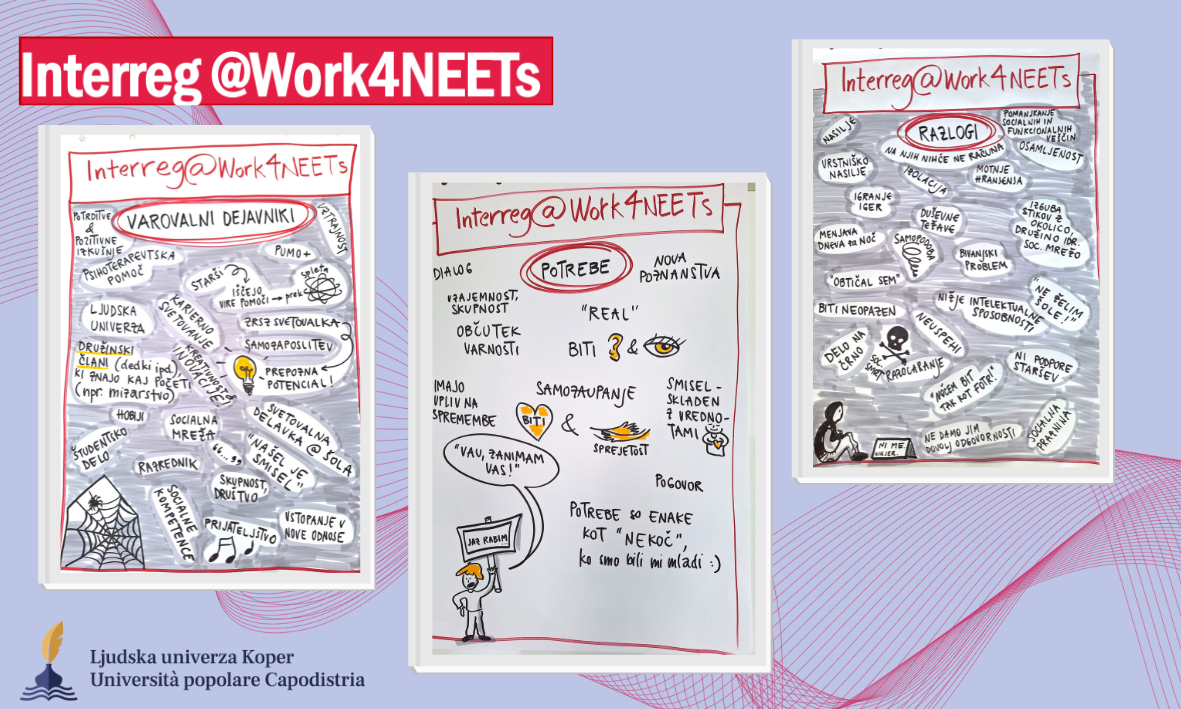 Interreg @Work4NEETs
Interreg@Work4NEETs
VAROVALNI DEJAVNIKI
POTRDITVE
&
POZITIVNE
IZKUŠNJE
VZTRAJNOST
PSIHOTERAPEVTSKA
POMOČ
PUMO+
STARŠI
IŠČEJO
VIRE POMOČI → prek
spleta
LJUDSKA
UNIVERZA
KARIERNO
SVETOVANJE
ZRSZ SVETOVALKA
SAMOZAPOSLITEV
KREATIVNOST &
INOVACIJE
PREPOZNA
POTENCIAL!
DRUŽINSKI
ČLANI (dedki ipd.)
KI ZNAJO KAJ POČETI
(npr. mizarstvo)
HOBIJI
SOCIALNA
MREŽA
SVETOVALNA
DELAVKA @ ŠOLA
ŠTUDENTSKO
DELO
RAZREDNIK
"NAŠEL JE
SMISEL"
SKUPNOST,
DRUŠTVO
SOCIALNE
KOMPETENCE
PRIJATELJSTVO
VSTOPANJE V
NOVE ODNOSE
Interreg@Work4NEETs
POTREBE
DIALOG
NOVA
POZNANSTVA
VZAJEMNOST,
SKUPNOST
"REAL"
OBČUTEK
VARNOSTI
BITI & 
IMAJO
UPLIV NA
SPREMEMBE
SAMOZAUPANJE
BITI
&
SPREJETOST
SMISEL -
SKLADEN
Z VREDNO-
TAMI
"VAU, ZANIMAM
VAS!"
POGOVOR
JAZ RABIM...
POTREBE SO ENAKE
KOT "NEKOČ",
ko smo bili mi mladi :)
Interreg@Work4NEETs
RAZLOGI
NASILJE
POMANJKANJE
SOCIALNIH IN
FUNKCIONALNIH
VEŠČIN
NA NJIH NIHČE NE RAČUNA
OSAMLJENOST
VRSTNIŠKO
NASILJE
IZOLACIJA
MOTNJE
HRANJENJA
IGRANJE
IGER
DUŠEVNE
TEŽAVE
IZGUBA
STIKOV Z
OKOLICO,
DRUŽINO IDR.
SOC. MREŽO
MENJAVA
DNEVA za NOČ
SAMOPODOBA
BIVANJSKI
PROBLEM
"OBTIČAL SEM"
"NE ŽELIM
ŠOLE!"
BITI NEOPAZEN
NIŽJE INTELEKTUALNE
SPOSOBNOSTI
NEUSPEHI
DELO NA
ČRNO
RAZOČARANJE
NI PODPORE
STARŠEV
"NOČEM BIT
TAK KOT FOTR!"
NE DAMO JIM
DOVOLJ ODGOVORNOSTI
SOCIALNA
PRAZNINA
NI ME
NIKJER.
Ljudska univerza Koper
Università popolare Capodistria